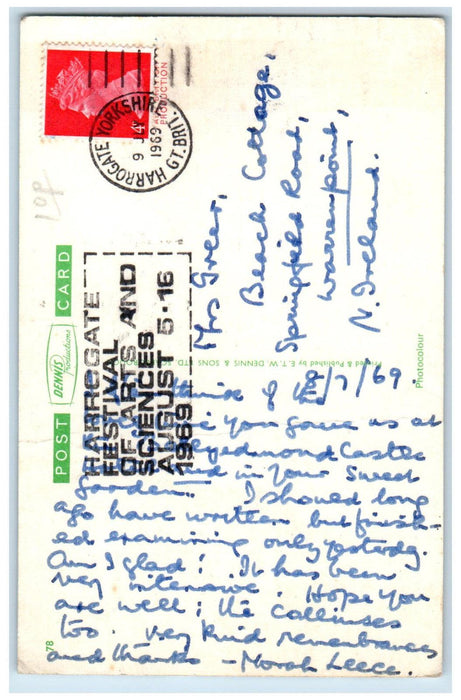 HARROGATE YORKSHIRE
9 JLY
1969
GT. BRIT.
4D
POST CARD
DENNIS
Productions
HARROGATE
FESTIVAL
OF ARTS AND
SCIENCES
AUGUST 5-16
1969
Printed & Published by E.T.W. DENNIS & SONS LTD.
Photocolour
Mrs Greer,
Beach Cottage,
Springfield Road,
Warrenpoint,
N. Ireland.
8/7/69.
think of the
you gave us at
Castle
and in your sweet
garden. I should long
ago have written but finish-
ed examining only yesterdy.
Am I glad! It has been
very intensive. Hope you
are well; the
too. Very kind remembrances
and thanks – Norah Leece.
78
lop